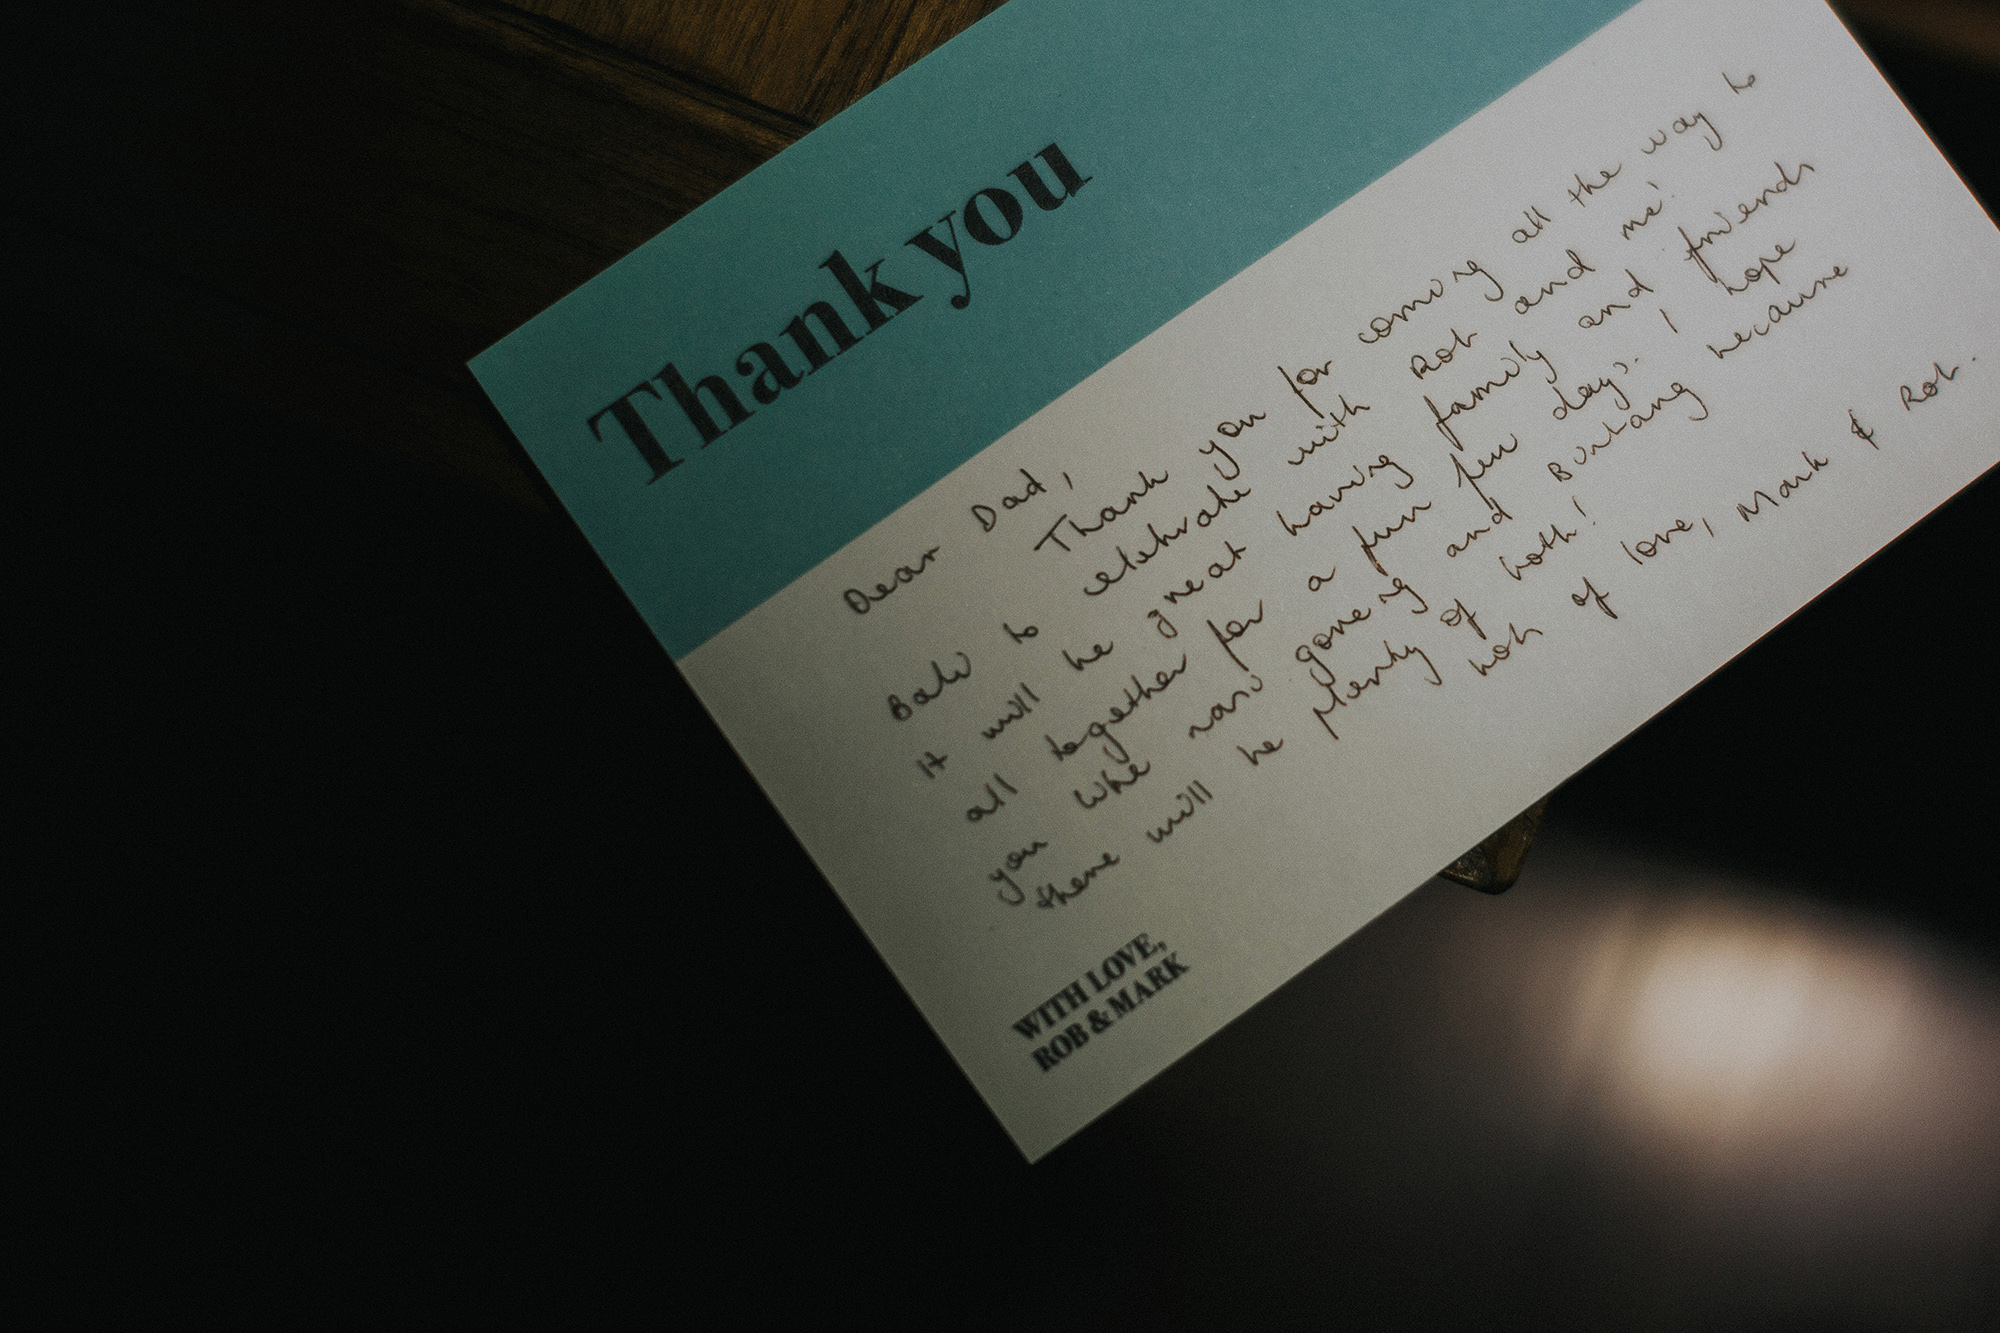 Thank you
Dear Dad,
Thank you for coming all the way to
Bali to celebrate with Rob and me!
It will be great having family and friends
all together for a fun few days. I hope
you like nasi goreng and Bintang because
there will be plenty of both!
lots of love, Mark & Rob.
WITH LOVE,
ROB & MARK